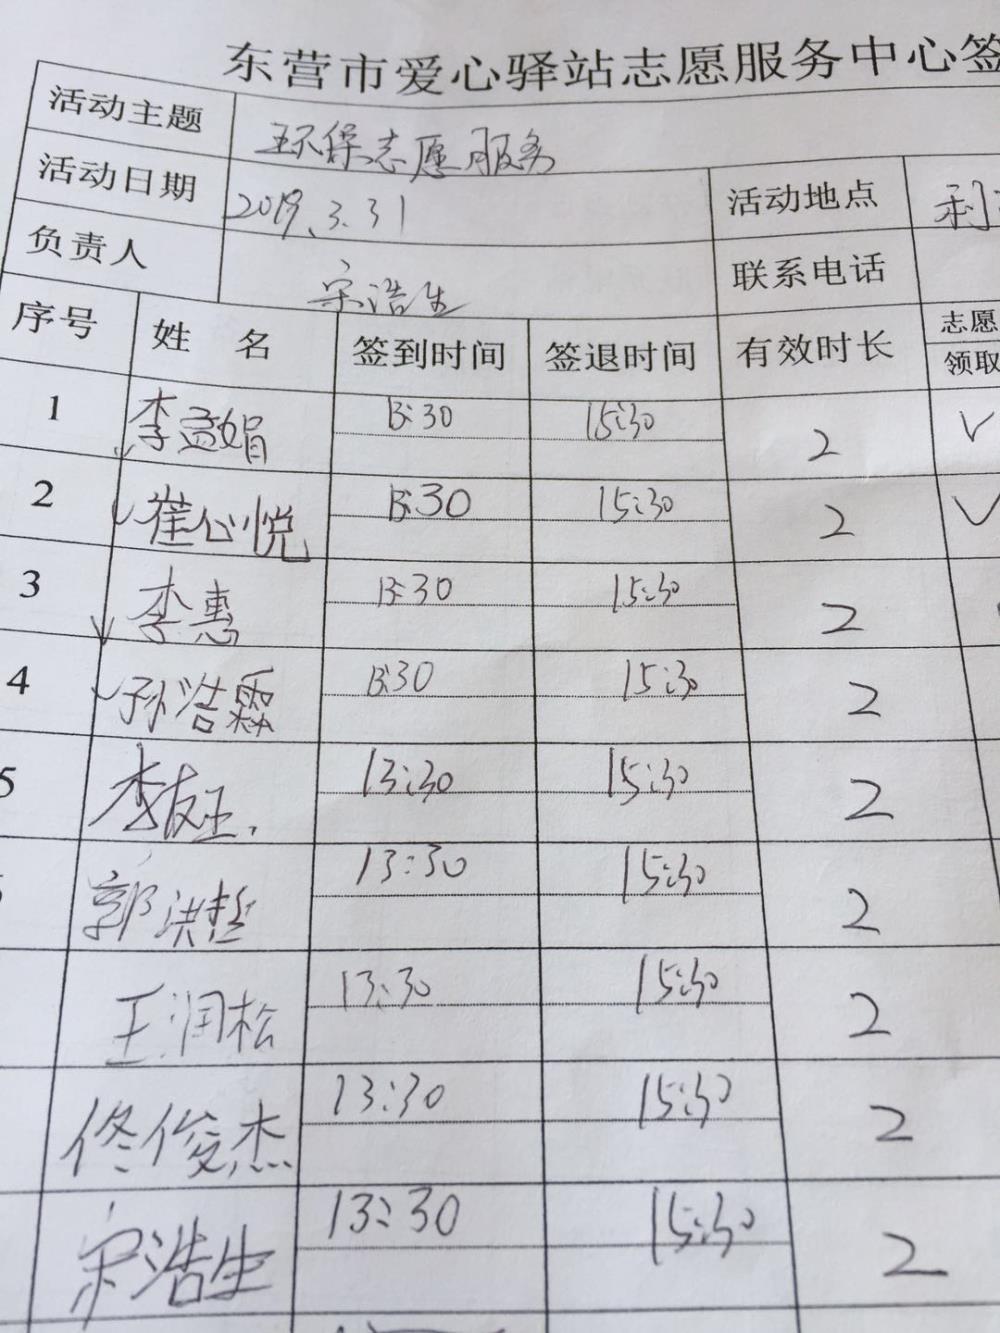 东营市爱心驿站志愿服务中心签
活动主题 环保志愿服务
活动日期 2019.3.31 活动地点 利
负责人 宋浩生 联系电话
序号 姓 名 签到时间 签退时间 有效时长 志愿
领取
1 李孟娟 13:30 15:30 2 √
2 崔心悦 13:30 15:30 2 √
3 李惠 13:30 15:30 2
4 孙浩霖 13:30 15:30 2
5 李友玉 13:30 15:30 2
郭洪哲 13:30 15:30 2
王润松 13:30 15:30 2
佟俊杰 13:30 15:30 2
宋浩生 13:30 15:30 2